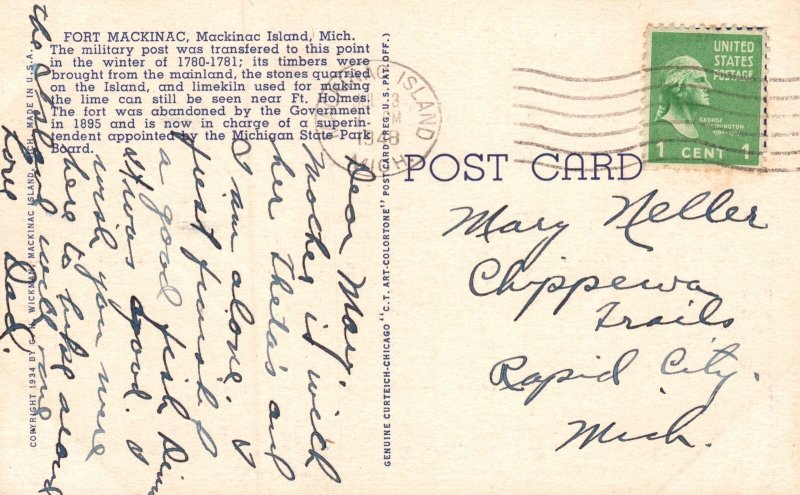 FORT MACKINAC, Mackinac Island, Mich.
The military post was transfered to this point
in the winter of 1780-1781; its timbers were
brought from the mainland, the stones quarried
on the Island, and limekiln used for making
the lime can still be seen near Ft. Holmes.
The fort was abandoned by the Government
in 1895 and is now in charge of a superin-
endent appointed by the Michigan State Park
Board.
COPYRIGHT 1934 BY G. H. WICKMAN, MACKINAC ISLAND, MICH. MADE IN U.S.A.
GENUINE CURTEICH-CHICAGO "C.T. ART-COLORTONE" POST CARD (REG. U.S. PAT. OFF.)
MACKINAC ISLAND
1948
MICH
UNITED
STATES
POSTAGE
GEORGE
WASHINGTON
1 CENT 1
POST CARD
Dear Mary,
Mother is with
her Thetas and
I am alone. I
just finished
a good fish dinner
It was good. I
wish you were
here to hike around
the island with me
Love Dad.
Mary Neller
Chippewa
Trails
Rapid City.
Mich.